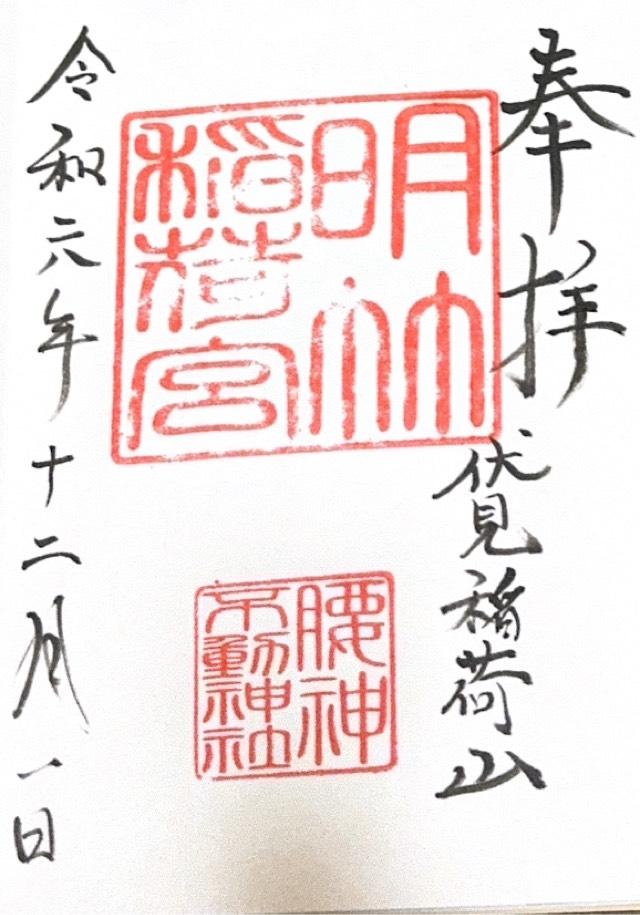 奉拝
伏見稲荷山
明竹
稲荷宮
腰神
不動神社
令和六年十二月一日